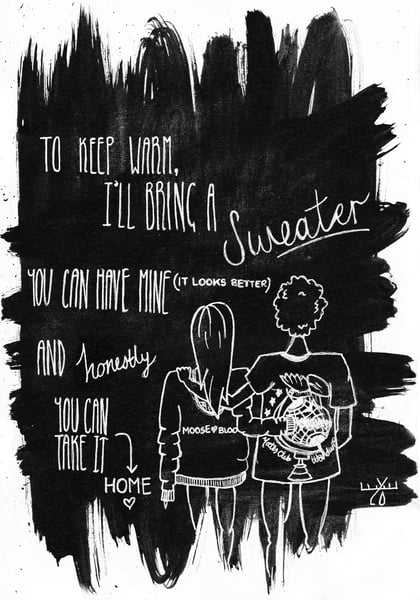 TO KEEP WARM,
I'LL BRING A
Sweater
YOU CAN HAVE MINE (IT LOOKS BETTER)
AND honestly
YOU CAN
TAKE IT
HOME
MOOSE♥BLOO
Kathy Club